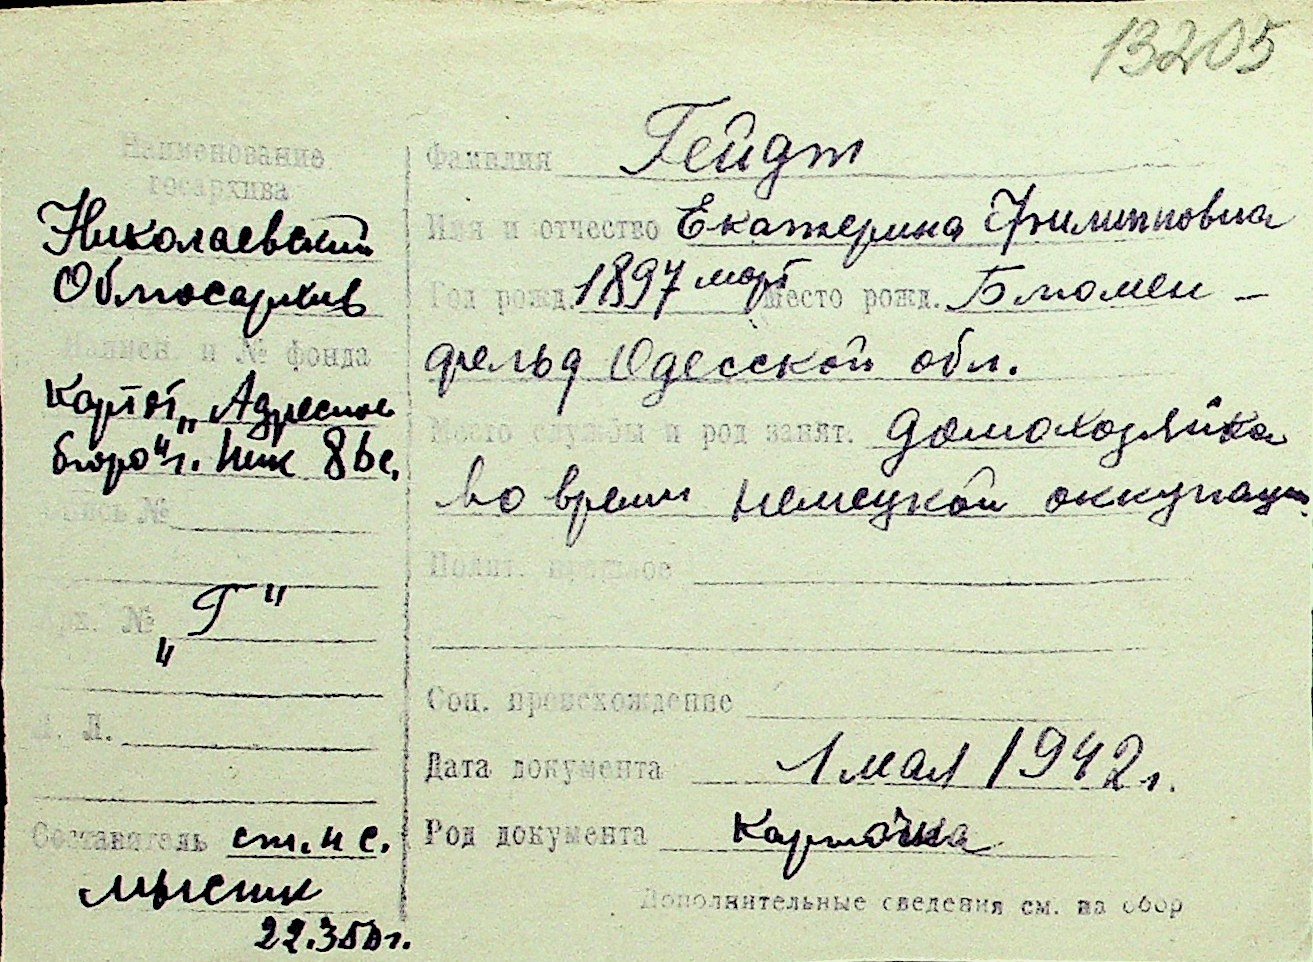 13205
Наименование
госархива
Николаевский
Облгосархив
Наимен. и № фонда
Картот. „Адресное
бюро" г. Ник
Опись №
Арх. № „Г"
Л. Л.
Составитель ст. н с.
22.3.50 г.
Фамилия Гейдт
Имя и отчество Екатерина Филипповна
Год рожд. 1897 март Место рожд. Блюмен-
фельд Одесской обл.
Место службы и род занят. домохозяйка
во время немецкой оккупации.
Полит. прошлое
Соц. происхождение
Дата документа 1 мая 1942 г.
Род документа Карточка
Дополнительные сведения см. на обор